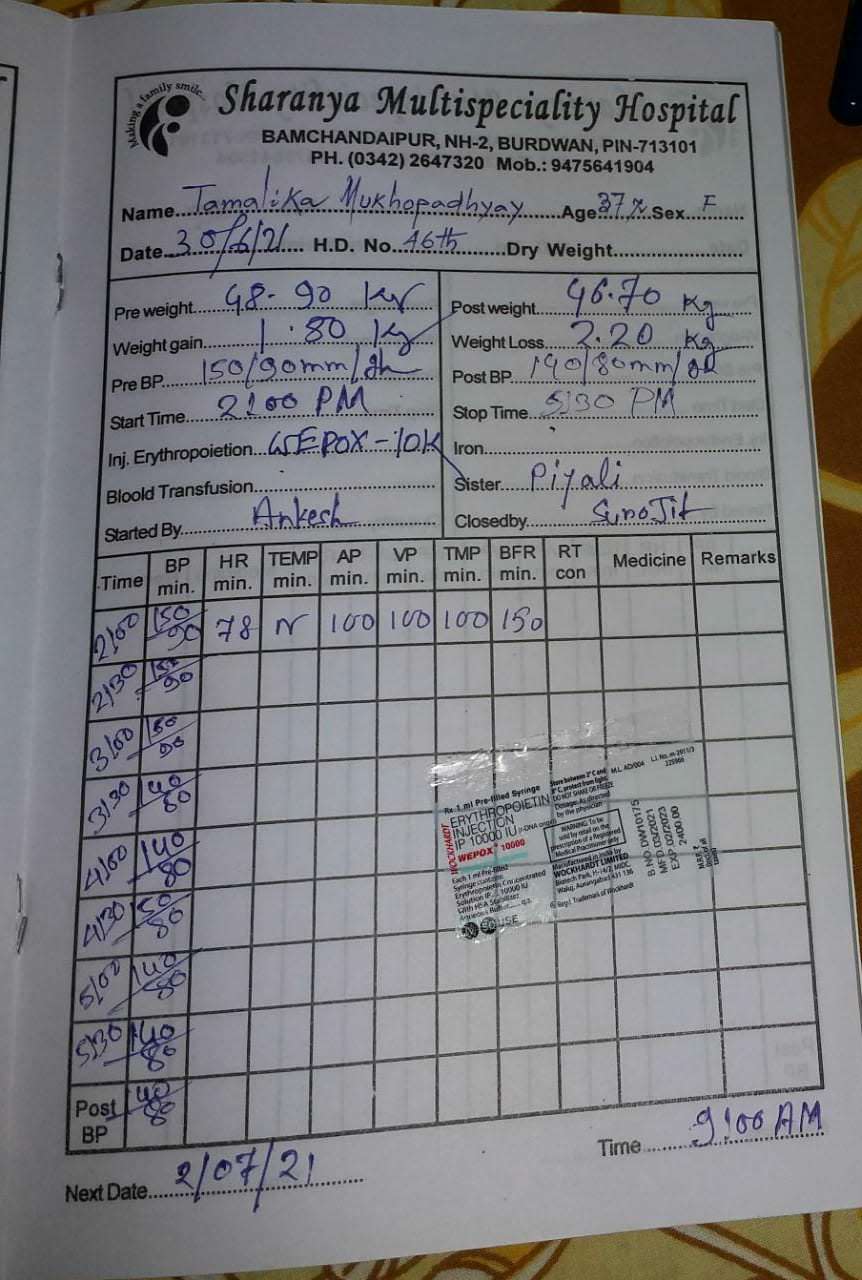 Making a family smile...
Sharanya Multispeciality Hospital
BAMCHANDAIPUR, NH-2, BURDWAN, PIN-713101
PH. (0342) 2647320 Mob.: 9475641904
Name Tamalika Mukhopadhyay Age 37 Sex F
Date 30/6/21 H.D. No. 46th Dry Weight
Pre weight 48.90 Kg
Weight gain 1.80 Kg
Pre BP 150/90mm/
Start Time 2:00 PM
Inj. Erythropoietion WEPOX-10K
Bloold Transfusion
Started By Ankesh
Post weight 46.70 Kg
Weight Loss 2.20 Kg
Post BP 140/80mm/
Stop Time 5:30 PM
Iron
Sister Piyali
Closedby SuroJit
Time BP min. HR min. TEMP min. AP min. VP min. TMP min. BFR min. RT con Medicine Remarks
2:00 150/90 78 N 100 100 100 150
2:30 150/90
3:00 150/90
3:30 140/80
4:00 140/80
4:30 150/80
5:00 140/80
5:30 140/80
Post BP 140/80
Rx 1 ml Pre-filled Syringe
ERYTHROPOIETIN
INJECTION
IP 10000 IU
WOCKHARDT
WEPOX 10000
Each 1 ml Pre-filled
Syringe contains:
Erythropoietin Concentrated
Solution 10000 IU
Store between 2° C and
8° C, protect from light.
DO NOT SHAKE OR FREEZE
Dosage: As directed
by the physician
WARNING: To be
sold by retail on the
prescription of a Registered
Medical Practitioner only
Manufactured in India by
WOCKHARDT LIMITED
Biotech Park, H-14/2, MIDC,
Waluj, Aurangabad 431 136
Regd. Trademark of Wockhardt
M.L. AD/004
B.NO.DW10175
MFD.03/2021
EXP.02/2023
2400.00
Next Date 2/07/21
Time 9:00 AM